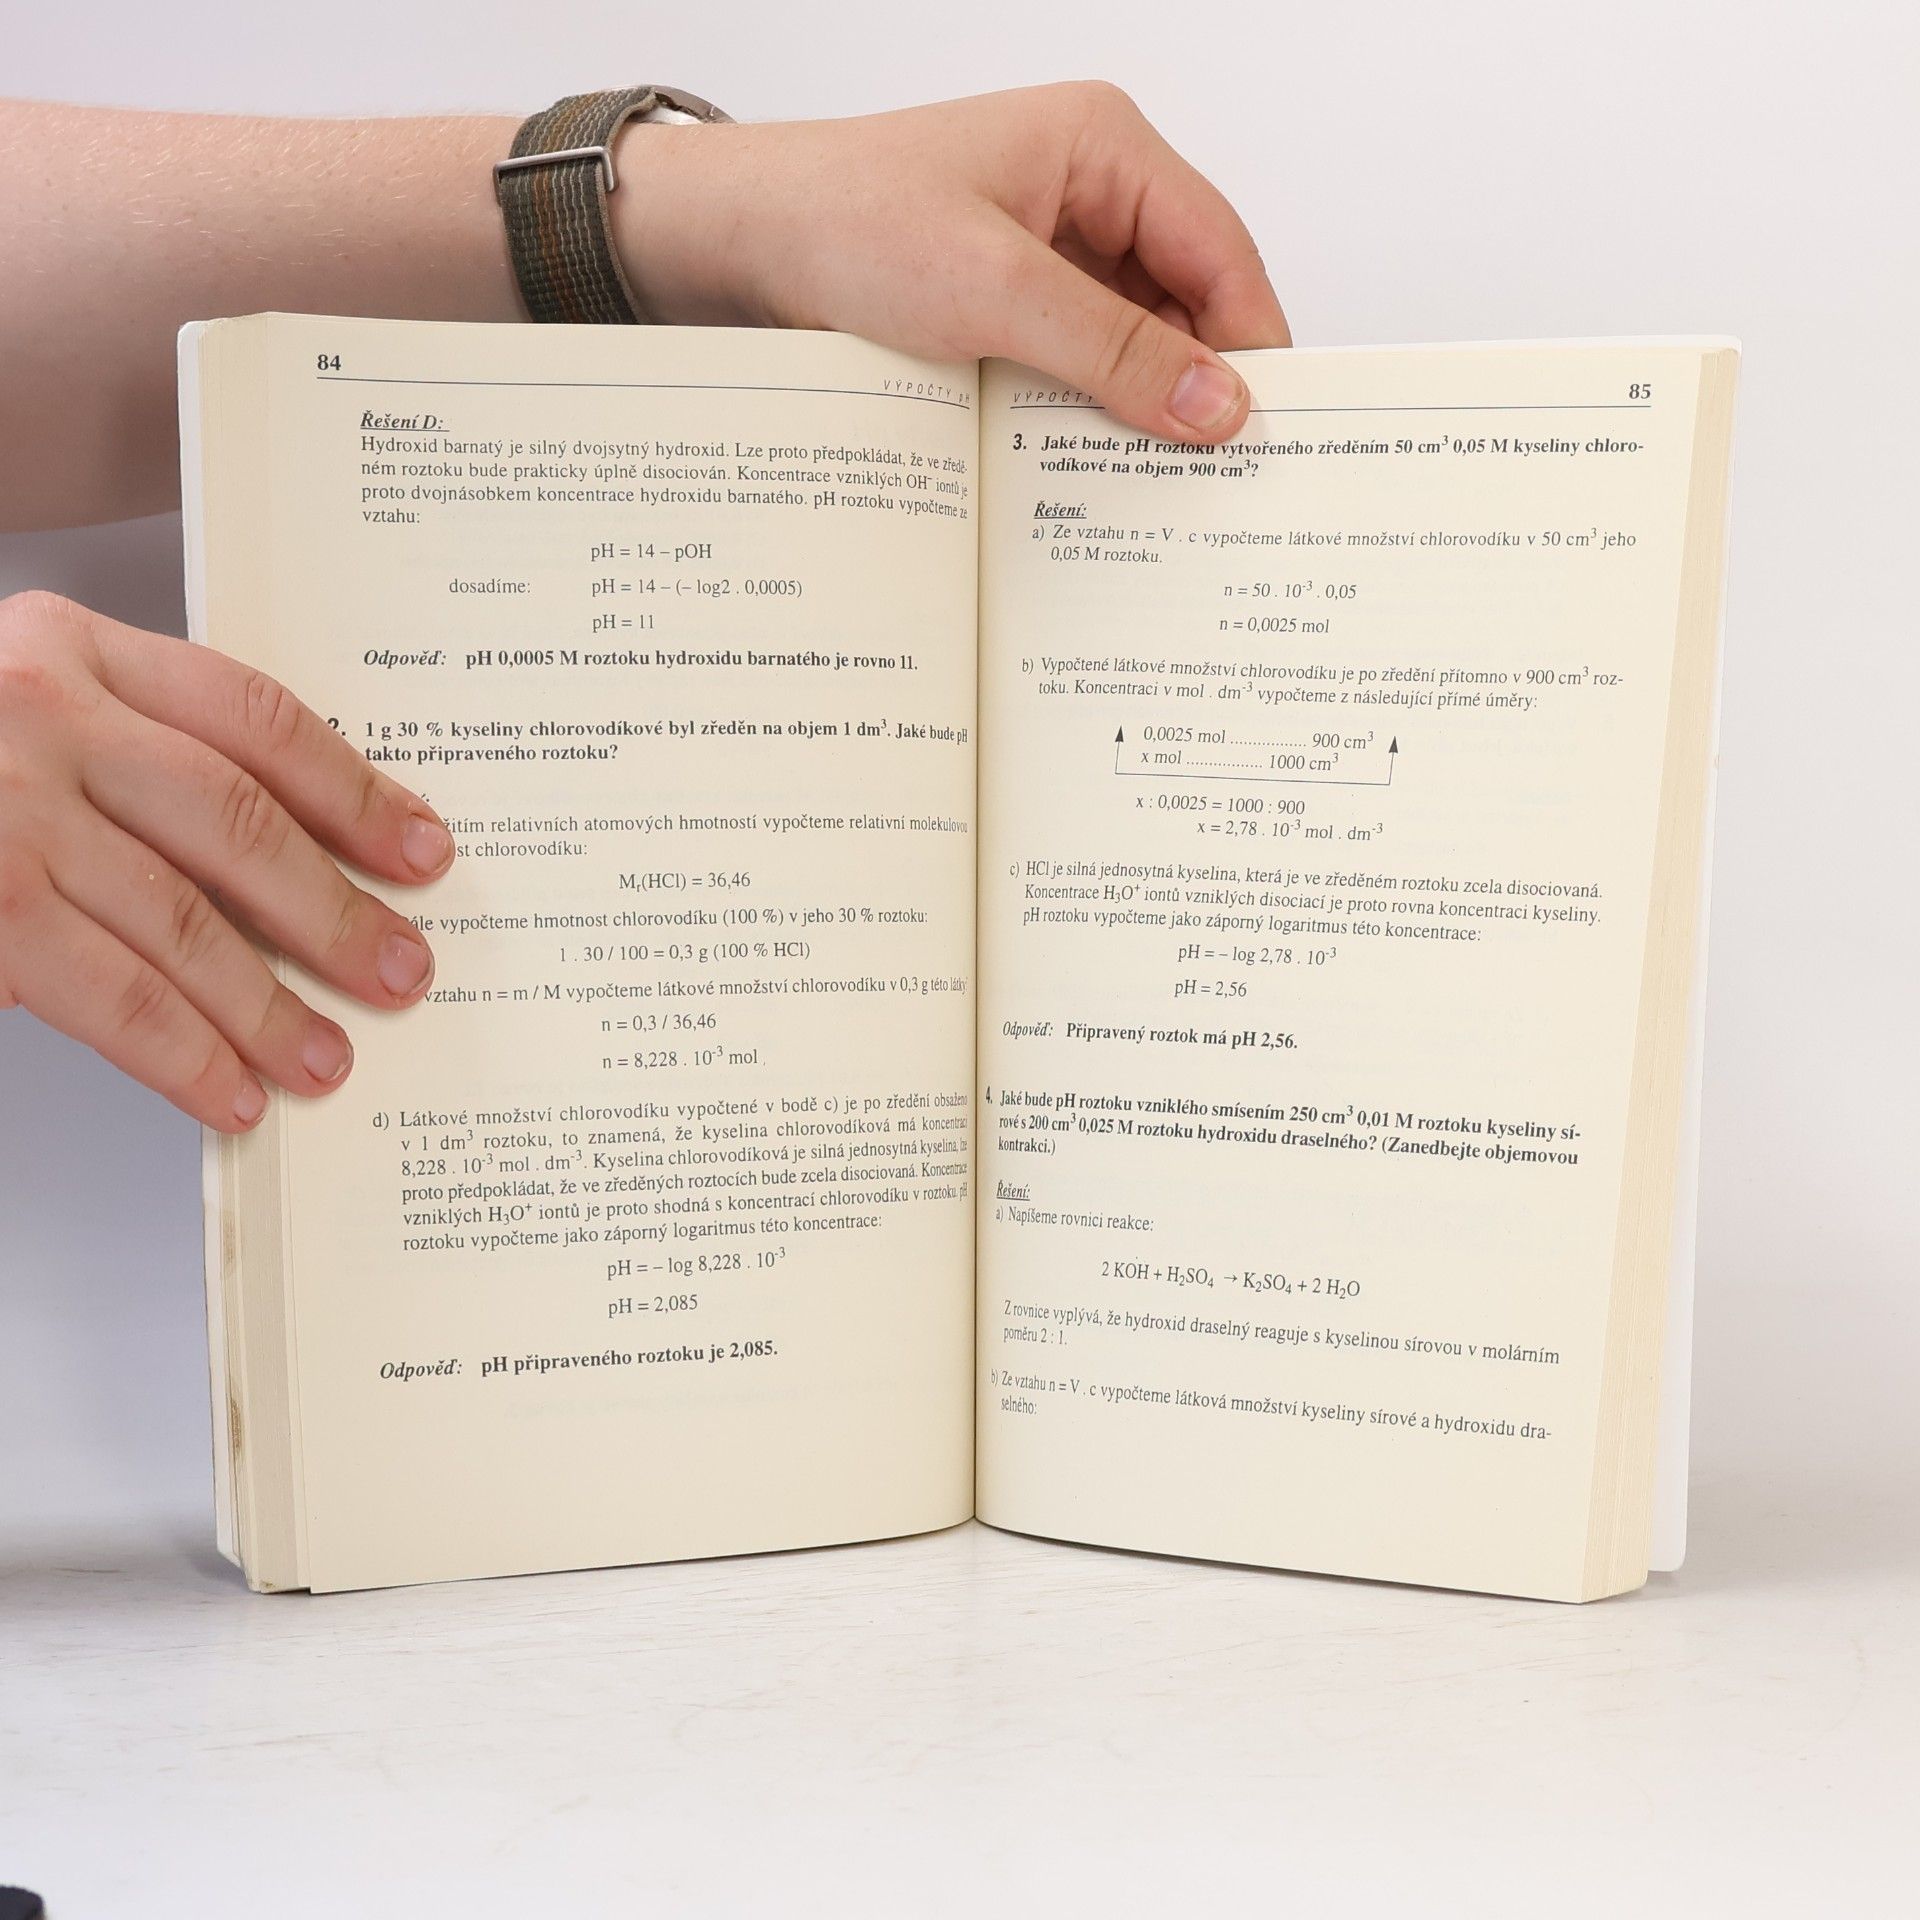 84
VÝPOČTY pH
Řešení D:
Hydroxid barnatý je silný dvojsytný hydroxid. Lze proto předpokládat, že ve zředě-
ném roztoku bude prakticky úplně disociován. Koncentrace vzniklých OH⁻ iontů je
proto dvojnásobkem koncentrace hydroxidu barnatého. pH roztoku vypočteme ze
vztahu:
pH = 14 – pOH
dosadíme: pH = 14 – (– log2 . 0,0005)
pH = 11
Odpověď: pH 0,0005 M roztoku hydroxidu barnatého je rovno 11.
2. 1 g 30 % kyseliny chlorovodíkové byl zředěn na objem 1 dm³. Jaké bude pH
takto připraveného roztoku?
žitím relativních atomových hmotností vypočteme relativní molekulovou
st chlorovodíku:
Mᵣ(HCl) = 36,46
ále vypočteme hmotnost chlorovodíku (100 %) v jeho 30 % roztoku:
1 . 30 / 100 = 0,3 g (100 % HCl)
vztahu n = m / M vypočteme látkové množství chlorovodíku v 0,3 g této látky:
n = 0,3 / 36,46
n = 8,228 . 10⁻³ mol .
d) Látkové množství chlorovodíku vypočtené v bodě c) je po zředění obsaženo
v 1 dm³ roztoku, to znamená, že kyselina chlorovodíková má koncentraci
8,228 . 10⁻³ mol . dm⁻³. Kyselina chlorovodíková je silná jednosytná kyselina, lze
proto předpokládat, že ve zředěných roztocích bude zcela disociovaná. Koncentrace
vzniklých H₃O⁺ iontů je proto shodná s koncentrací chlorovodíku v roztoku. pH
roztoku vypočteme jako záporný logaritmus této koncentrace:
pH = – log 8,228 . 10⁻³
pH = 2,085
Odpověď: pH připraveného roztoku je 2,085.
VÝPOČTY
85
3. Jaké bude pH roztoku vytvořeného zředěním 50 cm³ 0,05 M kyseliny chloro-
vodíkové na objem 900 cm³?
Řešení:
a) Ze vztahu n = V . c vypočteme látkové množství chlorovodíku v 50 cm³ jeho
0,05 M roztoku.
n = 50 . 10⁻³ . 0,05
n = 0,0025 mol
b) Vypočtené látkové množství chlorovodíku je po zředění přítomno v 900 cm³ roz-
toku. Koncentraci v mol . dm⁻³ vypočteme z následující přímé úměry:
0,0025 mol ................. 900 cm³
x mol ................. 1000 cm³
x : 0,0025 = 1000 : 900
x = 2,78 . 10⁻³ mol . dm⁻³
c) HCl je silná jednosytná kyselina, která je ve zředěném roztoku zcela disociovaná.
Koncentrace H₃O⁺ iontů vzniklých disociací je proto rovna koncentraci kyseliny.
pH roztoku vypočteme jako záporný logaritmus této koncentrace:
pH = – log 2,78 . 10⁻³
pH = 2,56
Odpověď: Připravený roztok má pH 2,56.
4. Jaké bude pH roztoku vzniklého smísením 250 cm³ 0,01 M roztoku kyseliny sí-
rové s 200 cm³ 0,025 M roztoku hydroxidu draselného? (Zanedbejte objemovou
kontrakci.)
Řešení:
a) Napíšeme rovnici reakce:
2 KOH + H₂SO₄ → K₂SO₄ + 2 H₂O
Z rovnice vyplývá, že hydroxid draselný reaguje s kyselinou sírovou v molárním
poměru 2 : 1.
b) Ze vztahu n = V . c vypočteme látková množství kyseliny sírové a hydroxidu dra-
selného: